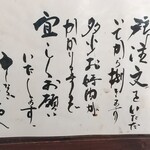 ご注文をいただ
いてから
多少お時間が
かかります
宜しくお願い
いたします。